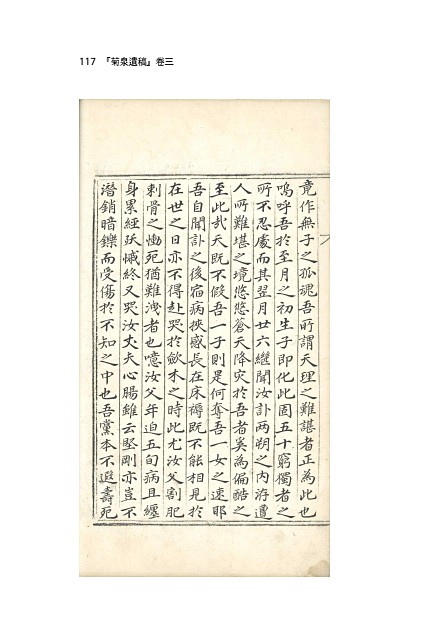 117 『菊泉遺稿』卷三
竟作無子之孤魂吾所謂天理之難諶者正為此也
嗚呼吾於至月之初生子即化此固五十窮獨者之
所不忍處而其翌月廿六繼聞汝訃两朔之内洊遭
人所難堪之境悠悠蒼天降灾於吾者奚為偏酷之
至此㢤天既不假吾一子則是何奪吾一女之速耶
吾自聞訃之後宿病挾感長在床褥既不能相見於
在世之日亦不得赴哭於斂木之時此尤汝父割肥
刺骨之慟死猶難洩者也噫汝父年迫五旬病且纏
身累經殀慽終又哭汝丈夫心腸雖云堅剛亦豈不
潛銷暗鑠而受傷於不知之中也吾黨本不遐壽死